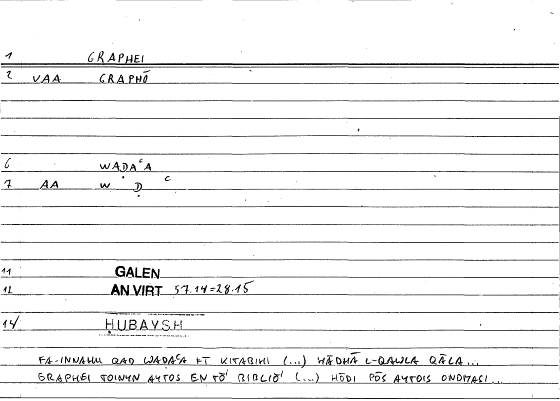 1 GRAPHEI
2 VAA GRAPHŌ
6 WADAʿA
7 AA W Ḍ ʿ
11 GALEN
12 AN.VIRT 57.14=28.15
14/ ḤUBAYSH
FA-INNAHU QAD WAḌAʿA FĪ KITABIHI (...) HĀDHĀ L-QAWLA QĀLA...
GRAPHEI TOINYN AYTOS EN TŌ BIBLIŌ (...) HŌDI PŌS AYTOIS ONOMASI...